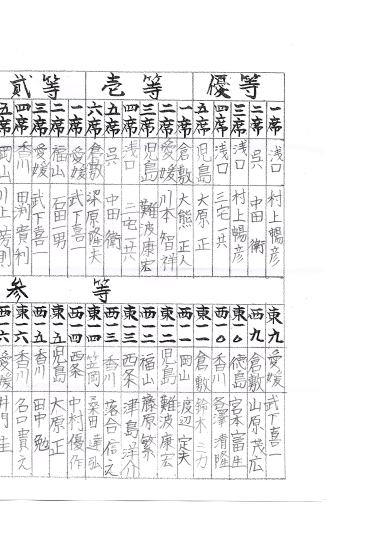 優等
一席 浅口 村上暢彦
二席 呉 中田 衛
三席 浅口 村上暢彦
四席 浅口 三宅一共
五席 児島 大原 正
壱等
一席 倉敷 大熊正人
二席 愛媛 川本智祥
三席 児島 難波康宏
四席 浅口 三宅一共
五席 呉 中田 衛
六席 倉敷 深原隆夫
貳等
一席 愛媛 武下喜一
二席 福山 石田 男
三席 愛媛 武下喜一
四席 香川 田渕貴利
五席 岡山 川上芳則
参等
東九 愛媛 武下喜一
西九 倉敷 山原茂広
東一〇 徳島 宮本富生
西一〇 香川 隆
東一一 倉敷 鈴木二力
西一一 岡山 渡辺定夫
東一二 児島 難波康宏
西一二 福山 藤原 繁
東一三 西条 津洋介
西一三 香川 落合信之
東一四 笠岡 桑田達弘
西一四 西条 中村優作
東一五 児島 大原 正
西一五 香川 田中 勉
東一六 香川 名口貴之
西一六 愛媛 井門 圭